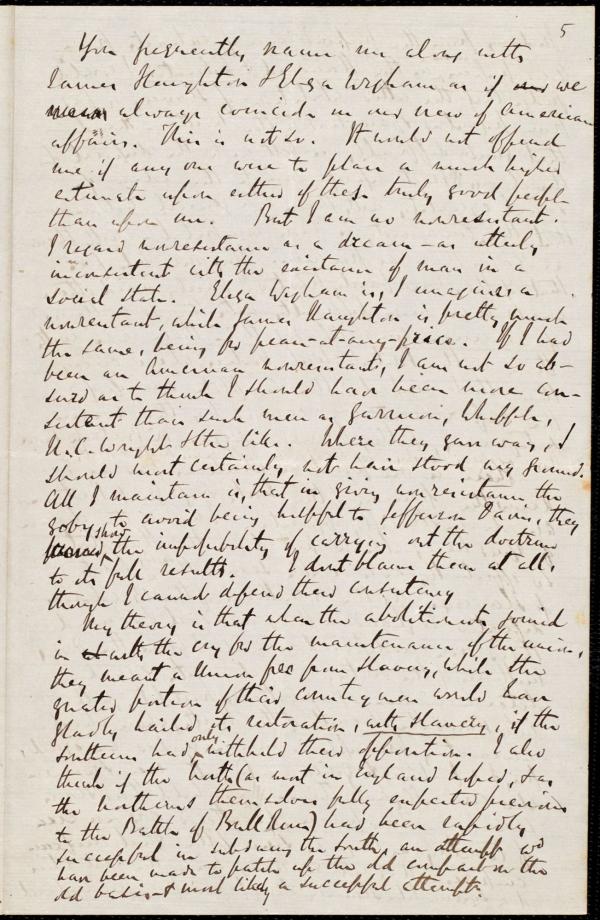 5
You frequently name me along with
James Haughton & Eliza Wigham as if we
always coincide in our view of American
affairs. This is not so. It would not offend
me if any one were to place a much higher
estimate upon either of these truly good people
than upon me. But I am no nonresistant.
I regard nonresistance as a dream – as utterly
inconsistent with the existence of man in a
social state. Eliza Wigham is, I imagine, a
nonresistant, while James Haughton is pretty much
the same, being for peace-at-any-price. If I had
been an American nonresistant, I am not so ab-
surd as to think I should have been more con-
sistent than such men as Garrison, Whipple,
H.C. Wright & the like. Where they gave way, I
should most certainly not have stood my ground.
All I maintain is, that in giving nonresistance the
goby to avoid being helpful to Jefferson Davis, they
show the impossibility of carrying out the doctrine
to its full results. I dont blame them at all,
though I cannot defend their consistency
My theory is that when the abolitionists joined
in with the cry for the maintenance of the union,
they meant a Union free from slavery, while the
greater portion of their countrymen would have
gladly hailed its restoration, with slavery, if the
Southerns had only withheld their opposition. I also
think if the North (as most in England hoped, & as
the northerns themselves fully expected previous
to the Battle of Bull Run) had been rapidly
successful in subduing the South, an attempt wd
have been made to patch up the old compact on the
old basis & most likely a successful attempt.